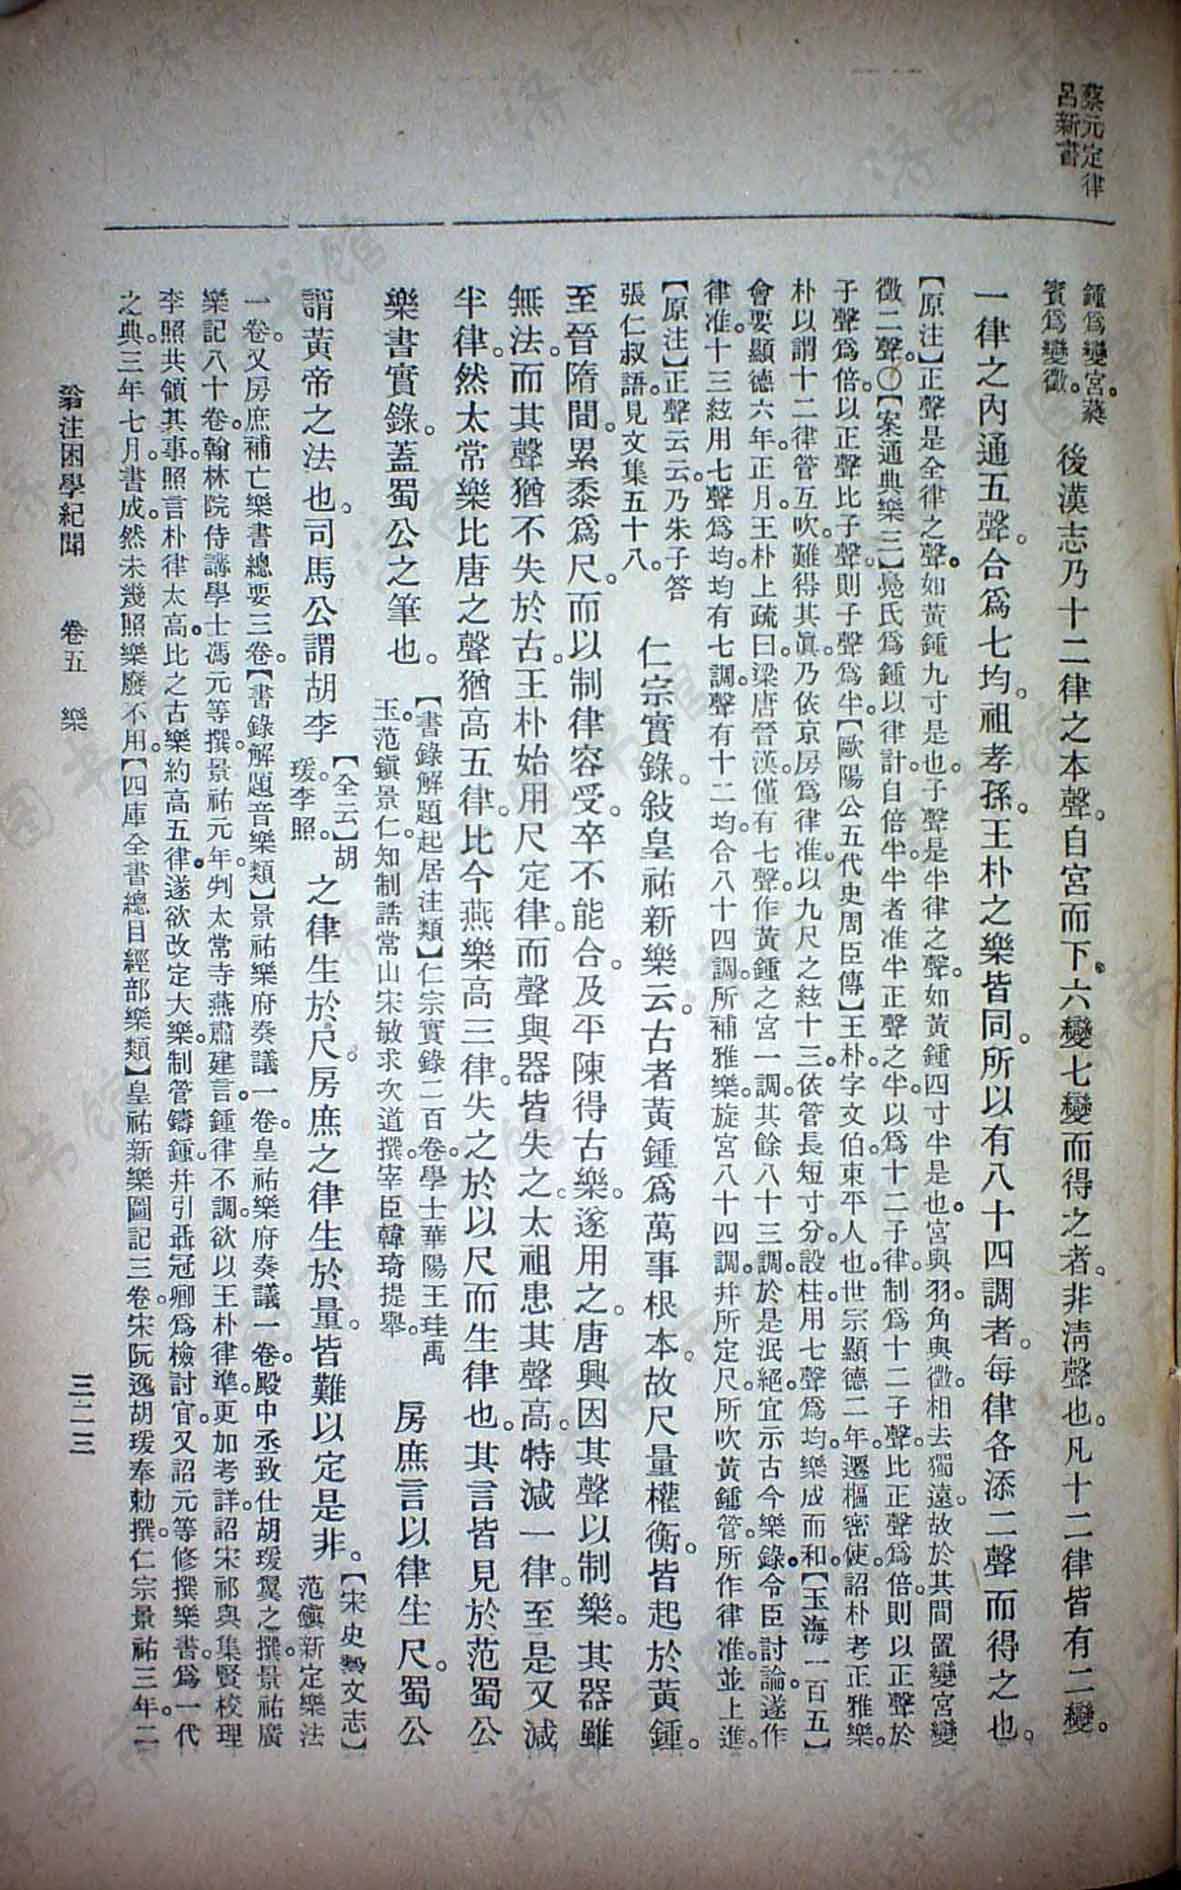 蔡元定律
呂新書
鍾爲變宮。蕤
賓爲變徵。
後漢志乃十二律之本聲。自宮而下。六變七變而得之者。非淸聲也。凡十二律皆有二變。
一律之內通五聲。合爲七均。祖孝孫。王朴之樂皆同。所以有八十四調者。每律各添二聲而得之也。
【原注】正聲是全律之聲。如黃鍾九寸是也。子聲是半律之聲。如黃鍾四寸半是也。宮與羽。角與徵。相去獨遠。故於其間置變宮變
徵二聲。〇【案通典樂三】鳧氏爲鍾以律計自倍半。半者准半正聲之半。以爲十二子律。制爲十二子聲。比正聲爲倍。則以正聲於
子聲爲倍。以正聲比子聲。則子聲爲半。【歐陽公五代史周臣傳】王朴。字文伯。東平人也。世宗顯德二年。遷樞密使。詔朴考正雅樂。
朴以謂十二律管互吹。難得其眞。乃依京房爲律准。以九尺之絃十三。依管長短寸分。設柱。用七聲爲均。樂成而和。【玉海一百五】
會要顯德六年。正月。王朴上疏曰。梁唐晉漢。僅有七聲。作黃鍾之宮一調。其餘八十三調。於是泯絕。宜示古今樂錄。令臣討論。遂作
律准。十三絃用七聲爲均。均有七調。聲有十二均。合八十四調。所補雅樂。旋宮八十四調。幷所定尺。所吹黃鍾管。所作律准。並上進。
【原注】正聲云云。乃朱子答
張仁叔語。見文集五十八。
仁宗實錄。敍皇祐新樂云。古者黃鍾爲萬事根本。故尺量權衡。皆起於黃鍾。
至晉隋間。累黍爲尺。而以制律容受。卒不能合。及平陳得古樂。遂用之。唐興因其聲以制樂。其器雖
無法。而其聲猶不失於古。王朴始用尺定律。而聲與器皆失之。太祖患其聲高。特減一律。至是又減
半律。然太常樂比唐之聲猶高五律。比今燕樂高三律。失之於以尺而生律也。其言皆見於范蜀公
樂書實錄。蓋蜀公之筆也。
【書錄解題起居注類】仁宗實錄二百卷。學士華陽王珪禹
玉。范鎭景仁。知制誥常山宋敏求次道撰。宰臣韓琦提舉。
房庶言以律生尺。蜀公
謂黃帝之法也。司馬公謂胡李
【全云】胡
瑗。李照。
之律生於尺。房庶之律生於量。皆難以定是非。
【宋史藝文志】
范鎭新定樂法
一卷。又房庶補亡樂書總要三卷。【書錄解題音樂類】景祐樂府奏議一卷。皇祐樂府奏議一卷。殿中丞致仕胡瑗翼之撰。景祐廣
樂記八十卷。翰林院侍講學士馮元等撰。景祐元年。判太常寺燕肅建言。鍾律不調。欲以王朴律準。更加考詳。詔宋祁與集賢校理
李照共領其事。照言朴律太高。比之古樂。約高五律。遂欲改定大樂。制管鑄鍾。幷引聶冠卿爲檢討官。又詔元等修撰樂書。爲一代
之典。三年七月。書成。然未幾照樂廢不用。【四庫全書總目經部樂類】皇祐新樂圖記三卷。宋阮逸胡瑗奉勅撰。仁宗景祐三年。二
翁注困學紀聞　卷五　樂
三二三